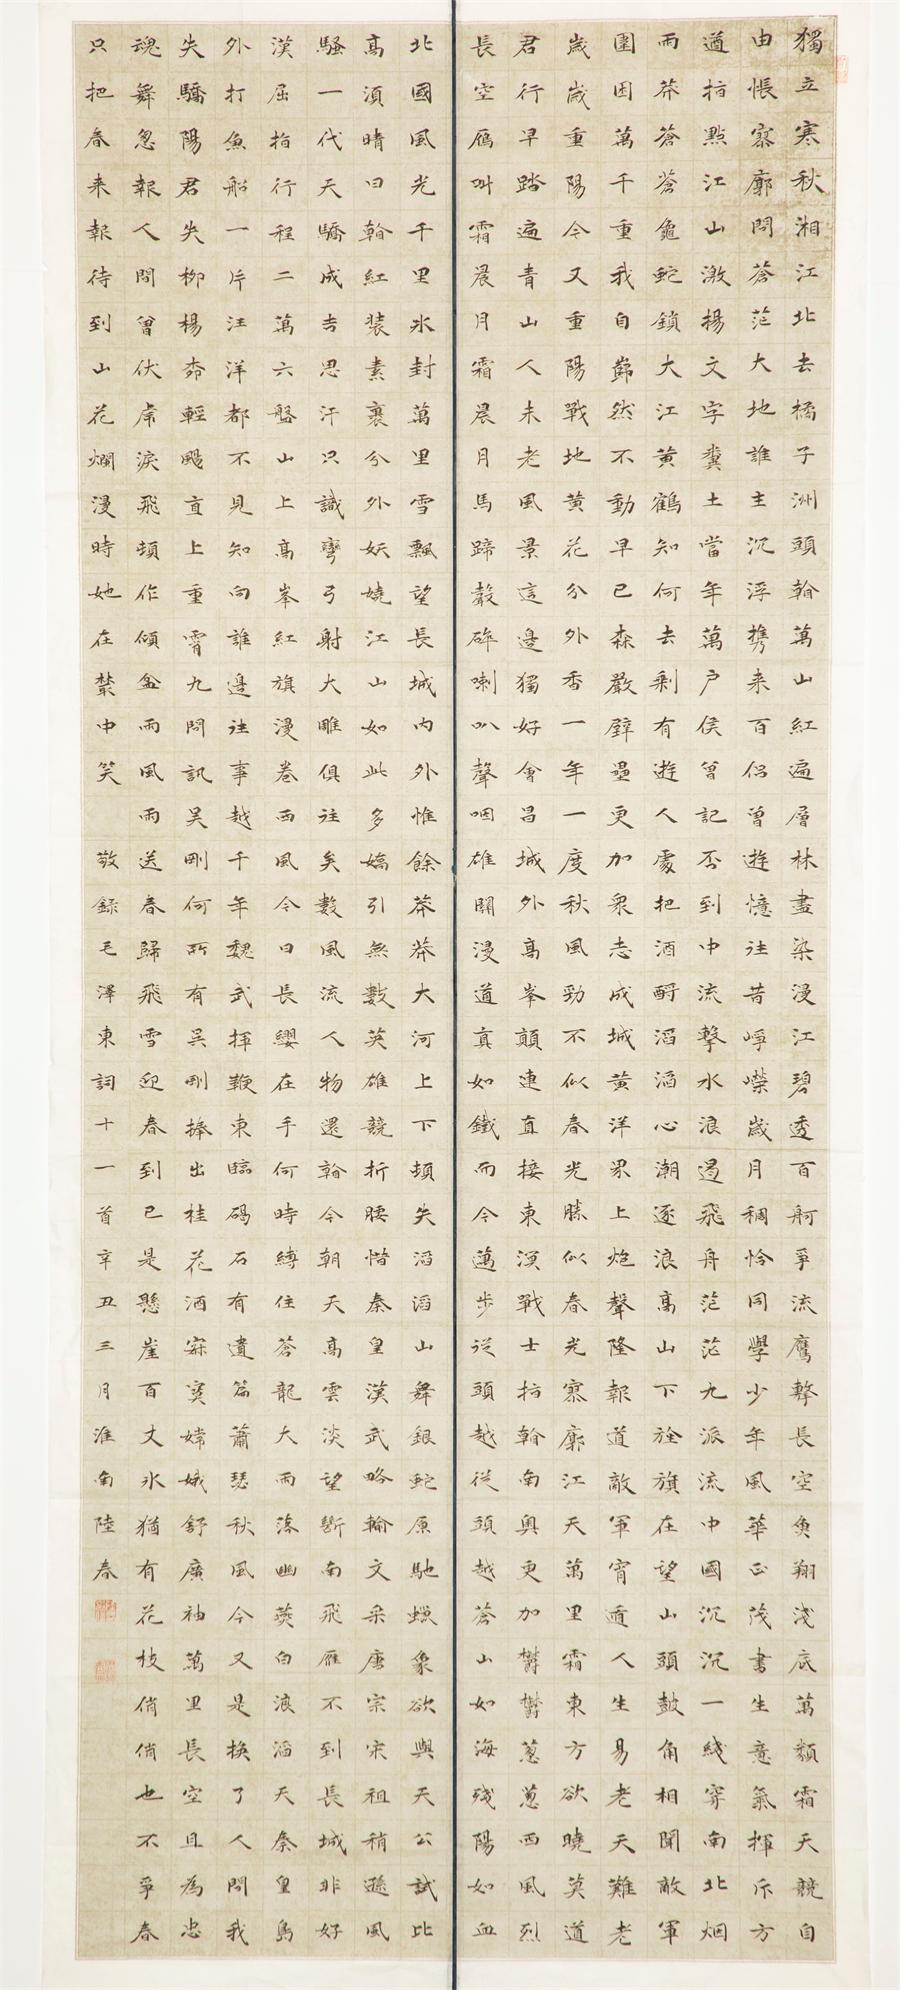 獨立寒秋湘江北去橘子洲頭看萬山紅遍層林盡染漫江碧透百舸爭流鷹擊長空魚翔淺底萬類霜天競自
由悵寥廓問蒼茫大地誰主沉浮攜来百侣曾遊憶往昔崢嶸歲月稠恰同學少年風華正茂書生意氣揮斥方
遒指點江山激揚文字糞土當年萬户侯曾記否到中流擊水浪遏飛舟茫茫九派流中國沉沉一綫穿南北烟
雨莽蒼蒼龜蛇鎖大江黄鶴知何去剩有遊人處把酒酹滔滔心潮逐浪高山下旌旗在望山頭鼓角相聞敵軍
圍困萬千重我自巋然不動早已森嚴壁壘更加衆志成城黄洋界上炮聲隆報道敵軍宵遁人生易老天難老
歲歲重陽今又重陽戰地黄花分外香一年一度秋風勁不似春光勝似春光寥廓江天萬里霜東方欲曉莫道
君行早踏遍青山人未老風景這邊獨好會昌城外高峯顛連直接東溟戰士指看南奥更加鬱鬱葱葱西風烈
長空雁叫霜晨月霜晨月馬蹄聲碎喇叭聲咽雄關漫道真如鐵而今邁步從頭越從頭越蒼山如海殘陽如血
北國風光千里冰封萬里雪飄望長城内外惟餘莽莽大河上下頓失滔滔山舞銀蛇原馳蠟象欲與天公試比
高須晴日看紅裝素裹分外妖嬈江山如此多嬌引無數英雄競折腰惜秦皇漢武略輸文采唐宗宋祖稍遜風
騷一代天驕成吉思汗只識彎弓射大雕俱往矣數風流人物還看今朝天高雲淡望斷南飛雁不到長城非好
漢屈指行程二萬六盤山上高峯紅旗漫卷西風今日長纓在手何時縛住蒼龍大雨落幽燕白浪滔天秦皇島
外打魚船一片汪洋都不見知向誰邊往事越千年魏武揮鞭東臨碣石有遺篇蕭瑟秋風今又是換了人間我
失驕陽君失柳楊柳輕颺直上重霄九問訊吴剛何所有吴剛捧出桂花酒寂寞嫦娥舒廣袖萬里長空且為忠
魂舞忽報人間曾伏虎淚飛頓作傾盆雨風雨送春歸飛雪迎春到已是懸崖百丈冰猶有花枝俏俏也不爭春
只把春来報待到山花爛漫時她在叢中笑 敬録毛澤東詞十一首辛丑三月淮南陸春